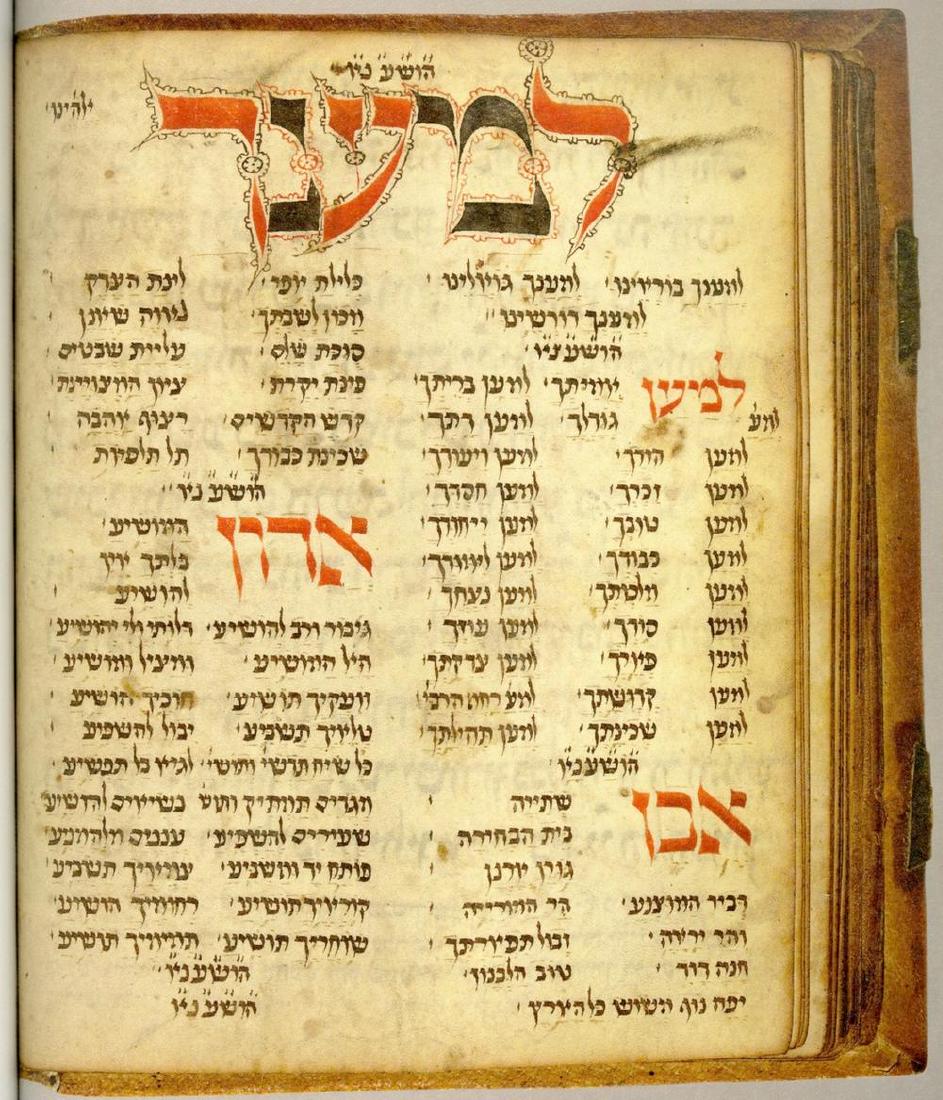 הושענא
אלהינו
למענך
למענך בוראינו · למענך גואלינו ·
למענך דורשינו
הושענא
למען אמיתך · למען בריתך ·
למע גודלך · למען דתך ·
למען הודך · למען ויעודך ·
למען זכרך · למען חסדך ·
למען טובך · למען ייחודך ·
למען כבודך · למען לימודך ·
למען מלכותך · למען נצחך ·
למען סודך · למען עוזך ·
למען פארך · למען צדקתך ·
למען קדושתך · למע רחמ הרבי
למען שכינתך · למען תהילתך ·
הושענא
אבן שתייה
בית הבחירה
גורן ארנן
דביר המוצנע · הר המורייה
והר יראה · זבול תפארתך ·
חנה דוד · טוב הלבנון ·
יפה נוף משוש כל הארץ ·
כלילת יופי · לינת הצדק
מכון לשבתך · נאווה שאנן
סוכת שלם · עליית שבטים
פינת יקרת · ציון המצויינה
קדש הקדשים · רצוף אהבה
שכינת כבודך · תל תלפיות
הושענא
אדון המושיע
בלתך אין
להושיע
גיבור ורב להושיע · דלותי ולי יהושיע
האל המושיע · ומציל ומושיע
זועקיך תושיע · חוכיך הושיע
טלאיך תשביע · יבול להשפיע
כל שיח תדשי ותושי · לגיא בל תפשיע
מגדים תמתיק ותוש נשיאים להסיע
שעירים להשפיע · עננים מלהמניע
פותח יד ומשביע · צמאיך תשביע
קוראיך תושיע · רחומיך הושיע
שוחריך תושיע · תמימיך תושיע
הושענא
הושענא